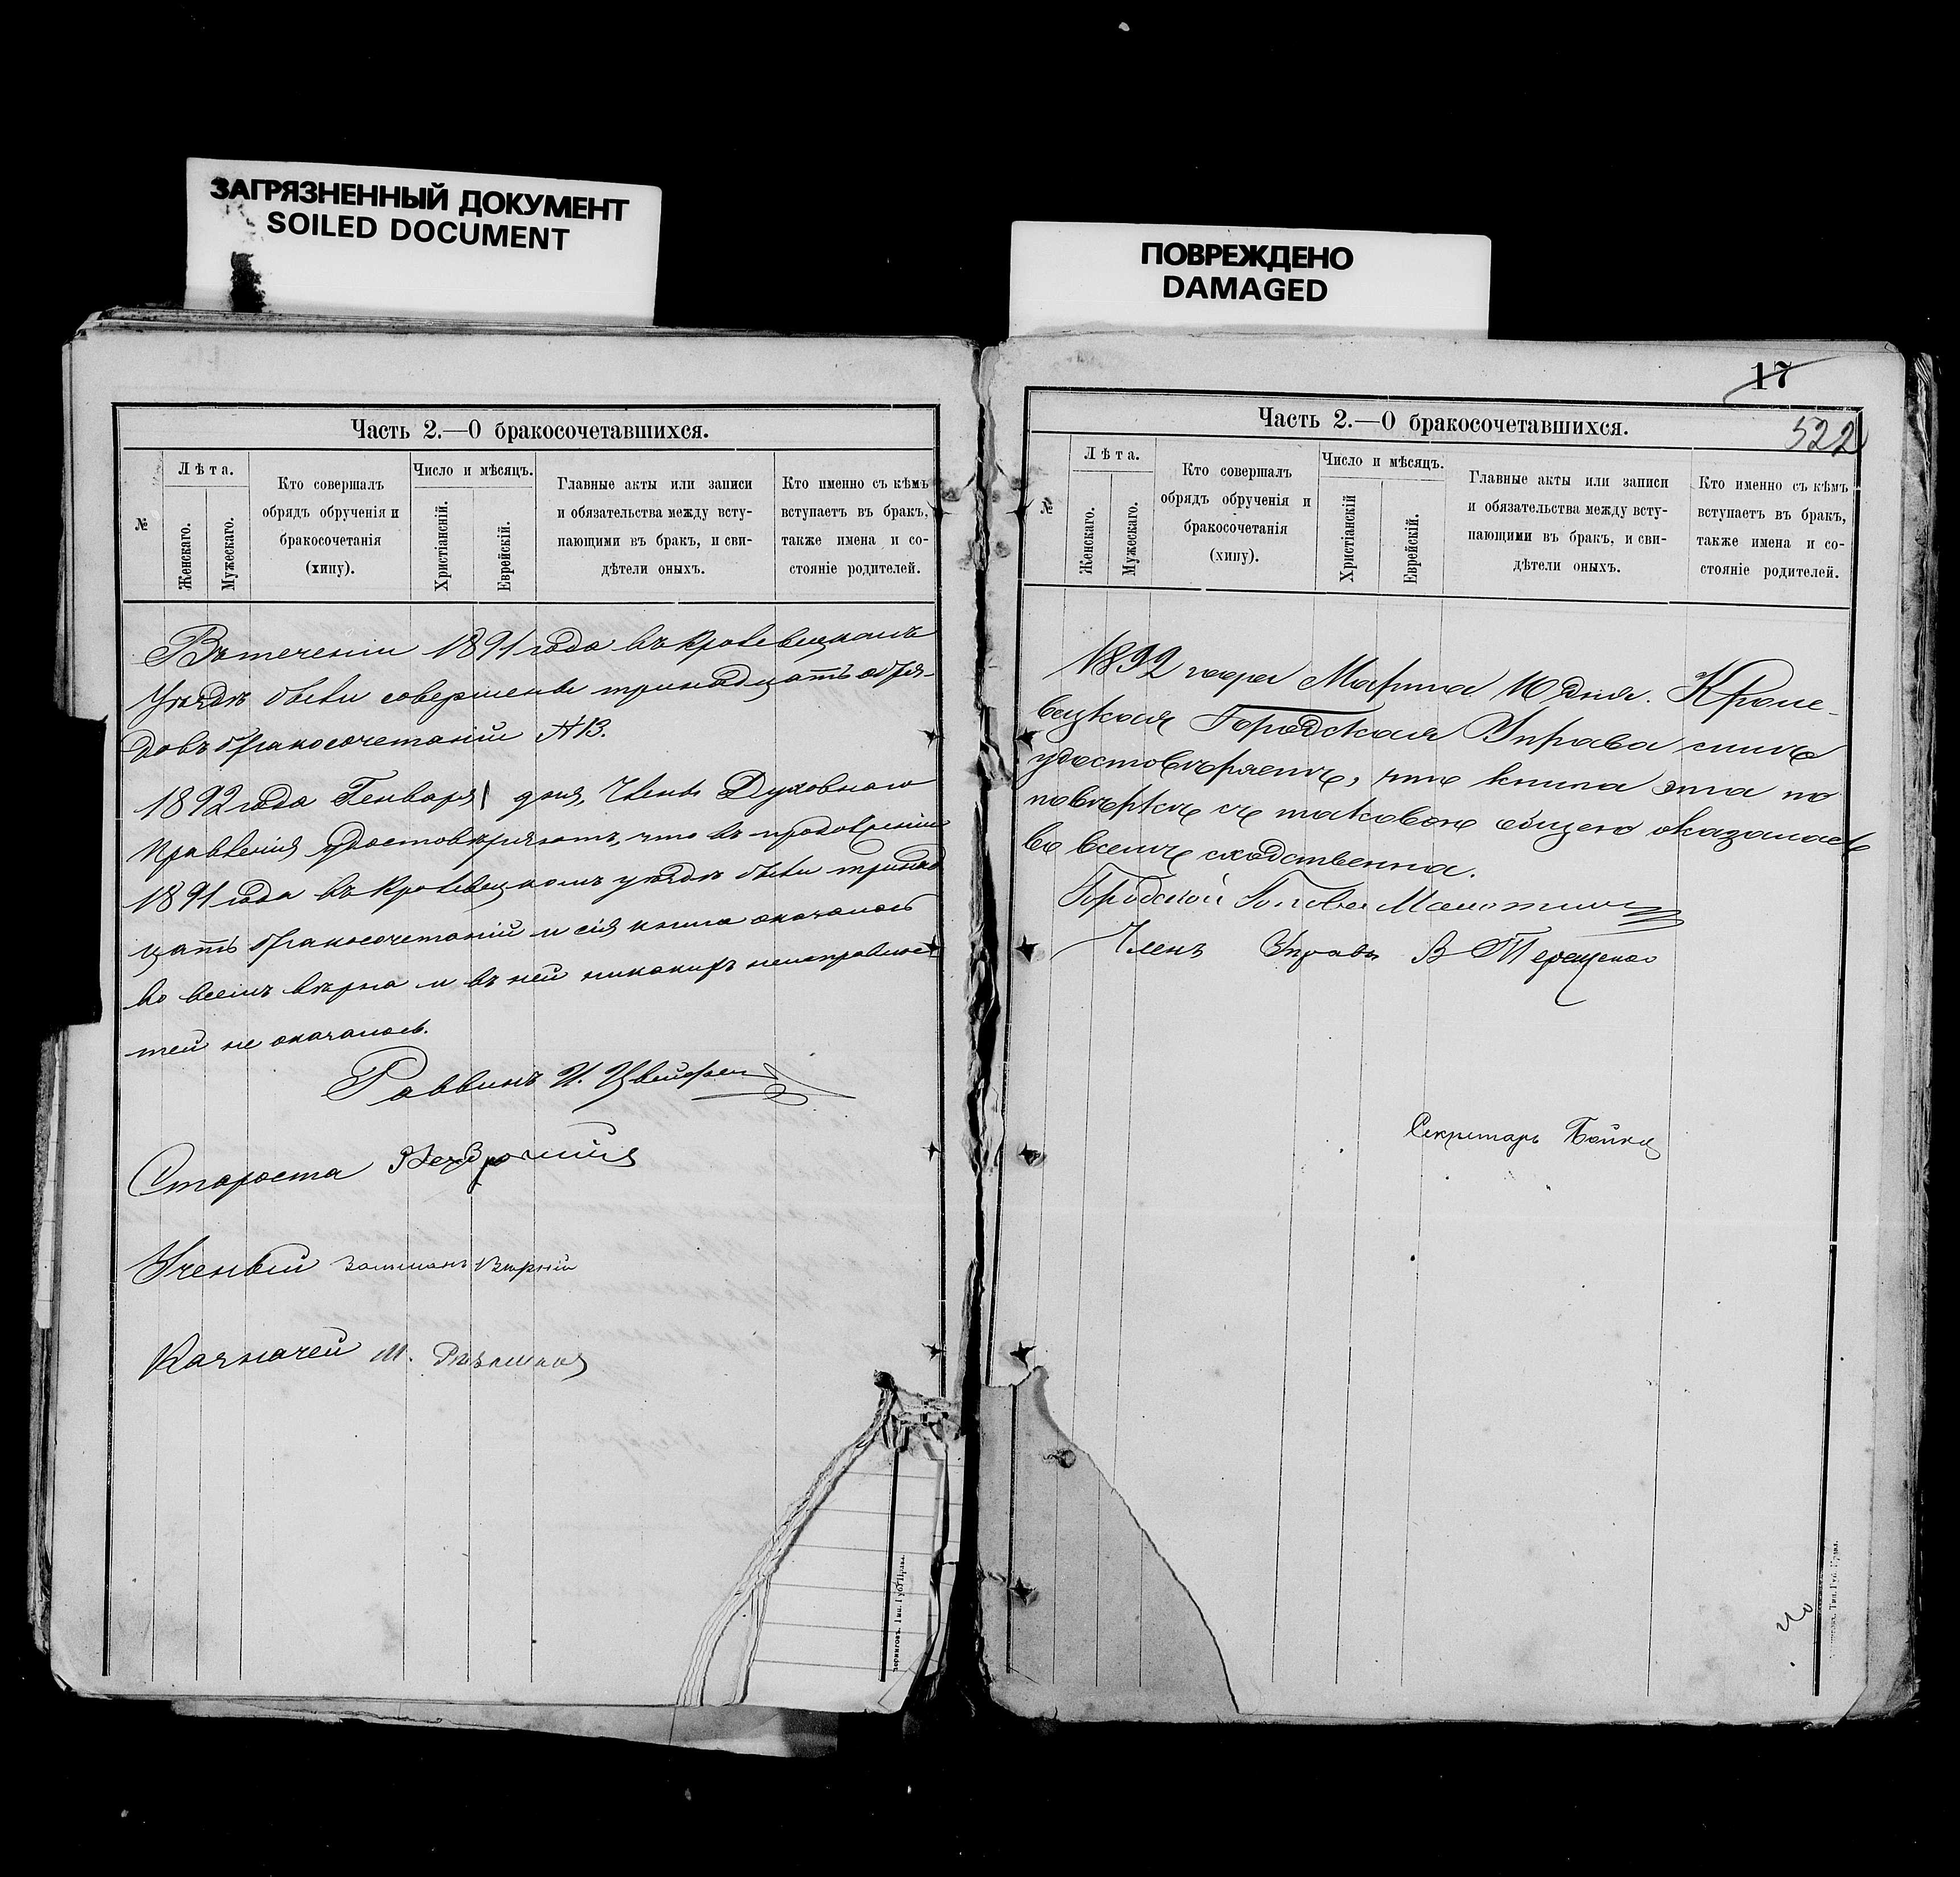 ЗАГРЯЗНЕННЫЙ ДОКУМЕНТ
SOILED DOCUMENT
Часть 2.—О бракосочетавшихся.
№
Лѣта.
Женскаго.
Мужескаго.
Кто совершалъ
обрядъ обрученія и
бракосочетанія
(хипу).
Число и мѣсяцъ.
Христіанскій.
Еврейскій.
Главные акты или записи
и обязательства между всту-
пающими въ бракъ, и сви-
дѣтели оныхъ.
Кто именно съ кѣмъ
вступаетъ въ бракъ,
также имена и со-
стояніе родителей.
Въ теченіи 1891 года въ Кролевецкомъ
Уѣздѣ были совершены тринадцать обря-
довъ бракосочетаній №13.
1892 года Генваря 1 дня, Члены Духовнаго
Правленія удостовѣряютъ, что въ продолженіи
1891 года въ Кролевецкомъ уѣздѣ были тринад
цать бракосочетаній и сія книга оказалась
во всемъ вѣрна и въ ней никакихъ неисправнос
тей не оказалось.
Раввинъ И.
Староста
Ученый Залманъ
Казначей М.
Черниговъ. Тип. Губ. Правл.
ПОВРЕЖДЕНО
DAMAGED
17
522
Часть 2.—О бракосочетавшихся.
№
Лѣта.
Женскаго.
Мужескаго.
Кто совершалъ
обрядъ обрученія и
бракосочетанія
(хипу).
Число и мѣсяцъ.
Христіанскій
Еврейскій.
Главные акты или записи
и обязательства между всту-
пающими въ бракъ, и сви-
дѣтели оныхъ.
Кто именно съ кѣмъ
вступаетъ въ бракъ,
также имена и со-
стояніе родителей.
1892 года Марта 10 дня. Кроле-
вецкая Городская Управа симъ
удостовѣряетъ, что книга эта по
повѣркѣ съ таковою общею оказалась
во всемъ сходственна.
Городской Голова
Членъ Управы В Терещенко
Секретарь Бойко
Тип. Губ. Правл.